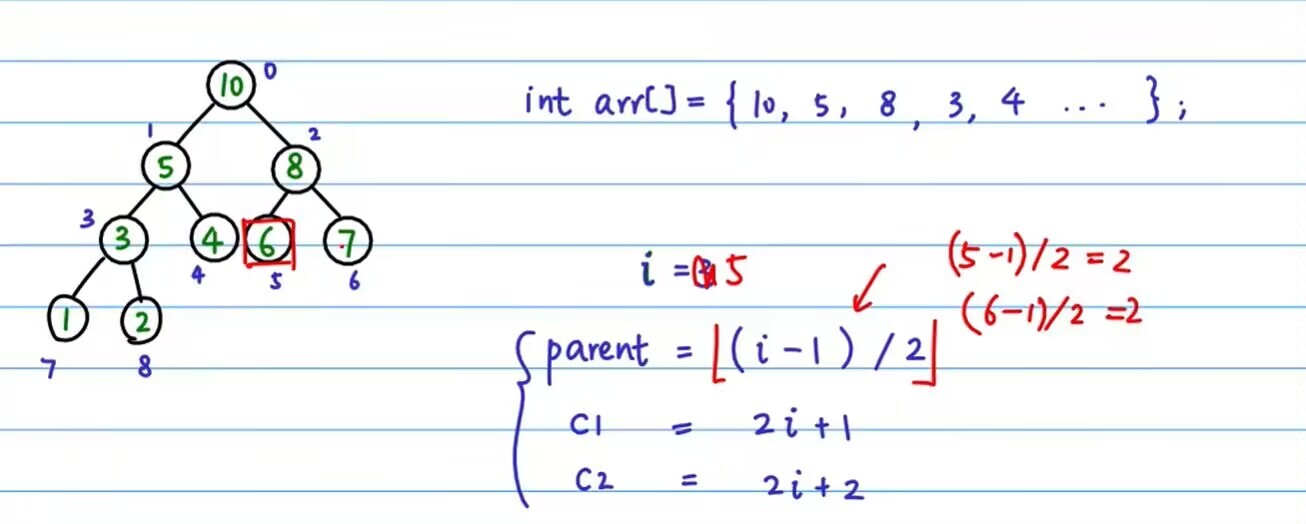 10 0
1 2
5 8
3
3 4 6 7
4 5 6
1 2
7 8
int arr[] = { 10, 5, 8, 3, 4 ... };
(5-1)/2 = 2
i = 5
(6-1)/2 = 2
parent = ⌊(i-1)/2⌋
C1 = 2i+1
C2 = 2i+2